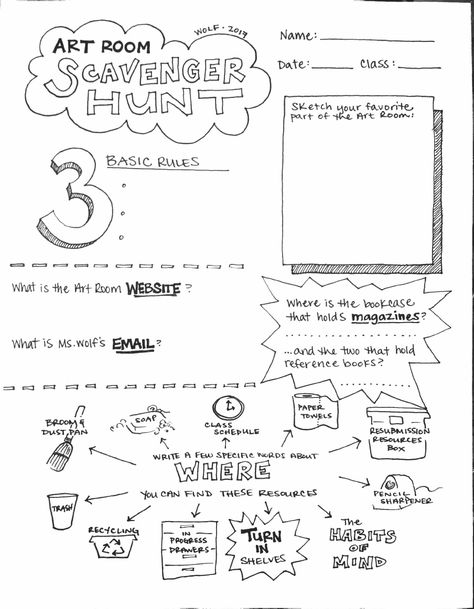 WOLF · 2019
ART ROOM
SCAVENGER
HUNT
Name:
Date: Class:
Sketch your favorite
part of the Art Room:
3 BASIC RULES
What is the Art Room WEBSITE?
What is Ms. Wolf's EMAIL?
Where is the bookcase
that holds magazines?
...and the two that hold
reference books?
BROOM &
DUST PAN
SOAP
CLASS
SCHEDULE
PAPER
TOWELS
RESUBMISSION
RESOURCES
BOX
WRITE A FEW SPECIFIC WORDS ABOUT
WHERE
YOU CAN FIND THESE RESOURCES
PENCIL
SHARPENER
TRASH
RECYCLING
IN
PROGRESS
DRAWERS
TURN
IN
SHELVES
The
HABITS
OF
MIND